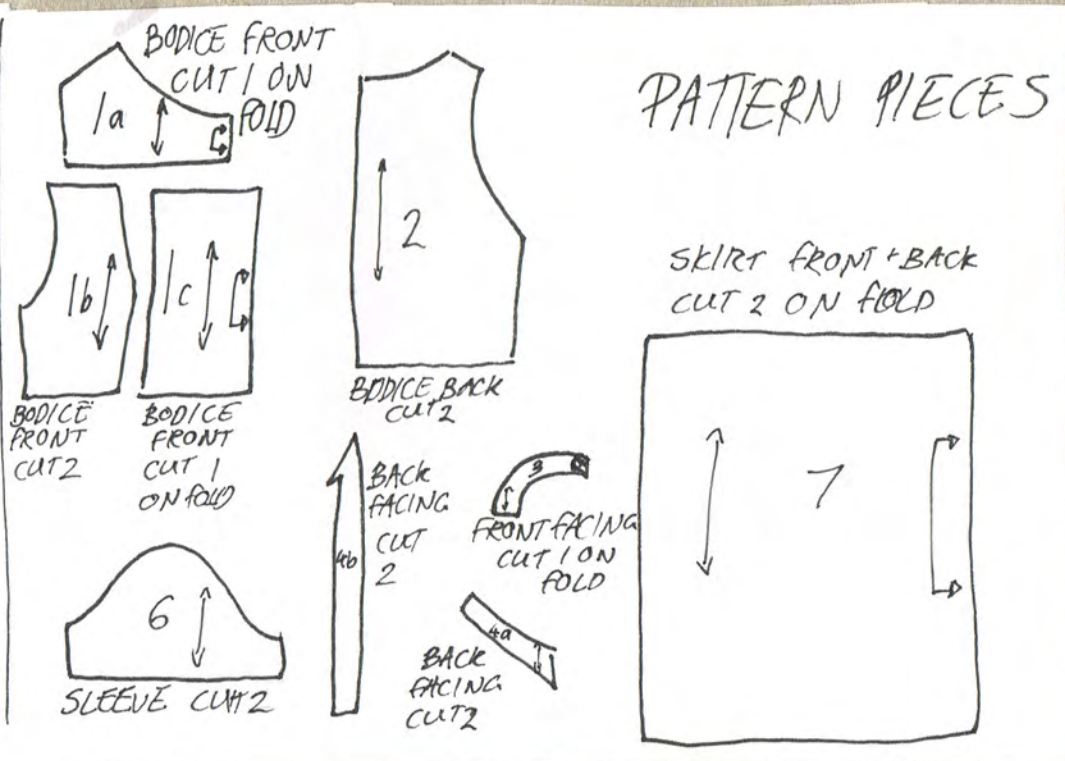 BODICE FRONT
CUT 1 ON
FOLD
1a
PATTERN PIECES
2
1b
1c
SKIRT FRONT + BACK
CUT 2 ON FOLD
BODICE BACK
CUT 2
BODICE
FRONT
CUT 2
BODICE
FRONT
CUT 1
ON FOLD
BACK
FACING
CUT
2
4b
3
FRONT FACING
CUT 1 ON
FOLD
7
6
SLEEVE CUT 2
4a
BACK
FACING
CUT 2